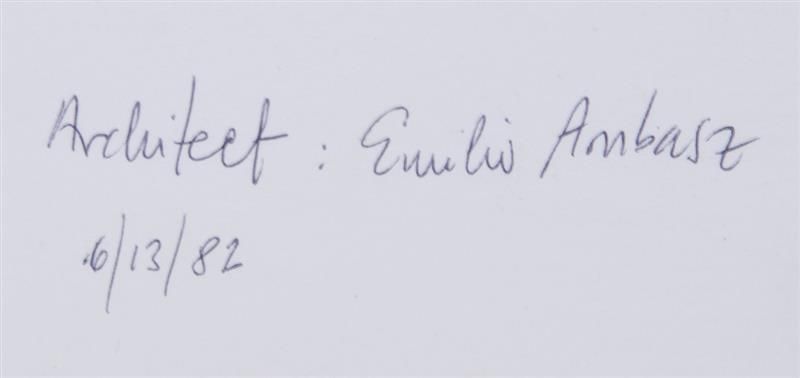 Architect : Emilio Ambasz
6/13/82